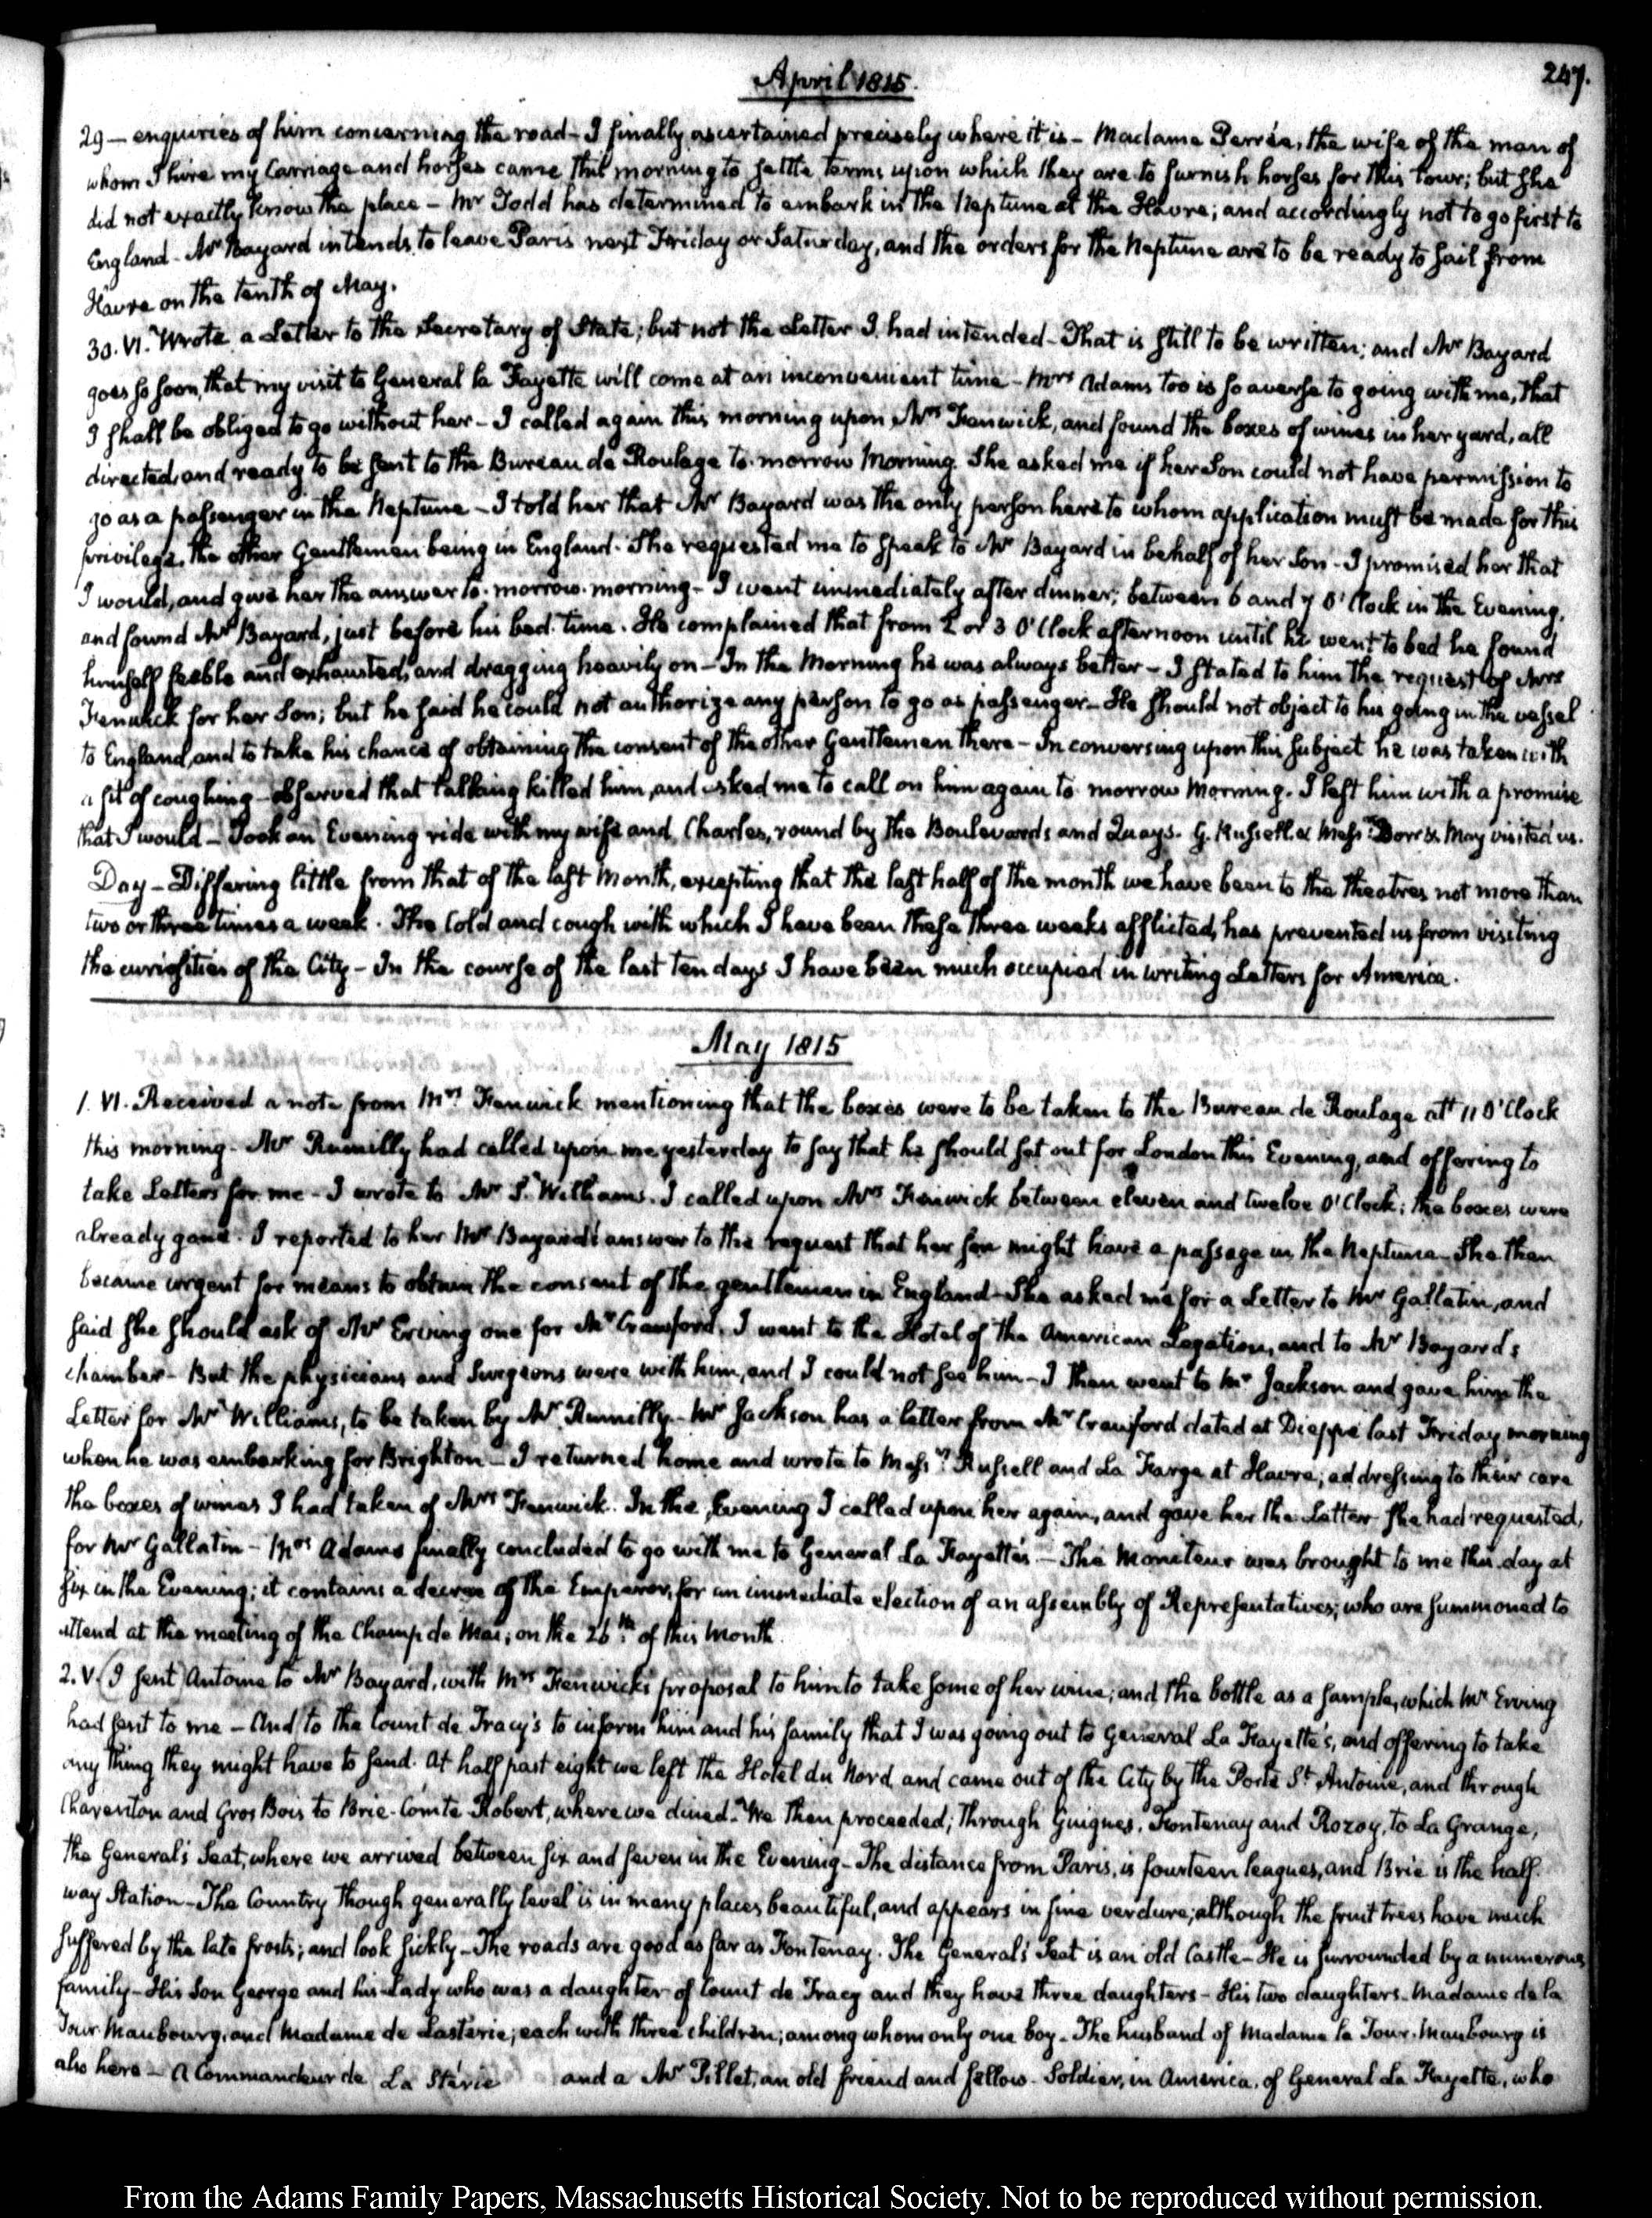 April 1815.
247.
29 — enquiries of him concerning the road — I finally ascertained precisely where it is — Madame Perrée, the wife of the man of
whom I hire my Carriage and horses came this morning to settle terms upon which they are to furnish horses for this tour; but she
did not exactly know the place — Mr Todd has determined to embark in the Neptune at the Havre; and accordingly not to go first to
England — Mr Bayard intends to leave Paris next Friday or Saturday, and the orders for the Neptune are to be ready to sail from
Havre on the tenth of May.
30. VI. Wrote a Letter to the Secretary of State; but not the Letter I had intended — That is still to be written; and Mr Bayard
goes so soon, that my visit to General la Fayette will come at an inconvenient time — Mrs Adams too is so averse to going with me, that
I shall be obliged to go without her — I called again this morning upon Mrs Fenwick, and found the boxes of wines in her yard, all
directed, and ready to be sent to the Bureau de Roulage to-morrow Morning. She asked me if her Son could not have permission to
go as a passenger in the Neptune — I told her that Mr Bayard was the only person here to whom application must be made for this
privilege, the other Gentlemen being in England. She requested me to speak to Mr Bayard in behalf of her Son — I promised her that
I would, and give her the answer to-morrow morning — I went immediately after dinner; between 6 and 7 O'Clock in the Evening,
and found Mr Bayard, just before his bed-time. He complained that from 2 or 3 O'Clock afternoon until he went to bed he found
himself feeble and exhausted, and dragging heavily on — In the Morning he was always better — I stated to him the request of Mrs
Fenwick for her Son; but he said he could not authorize any person to go as passenger — He should not object to his going in the vessel
to England, and to take his chance of obtaining the consent of the other Gentlemen there — In conversing upon this subject he was taken with
a fit of coughing — observed that talking killed him, and asked me to call on him again to-morrow Morning. I left him with a promise
that I would — Took an Evening ride with my wife and Charles, round by the Boulevards and Quays. G. Russell & Messrs Dorr & May visited us.
Day — Differing little from that of the last Month, excepting that the last half of the month we have been to the theatres not more than
two or three times a week. The Cold and cough with which I have been these three weeks afflicted, has prevented us from visiting
the curiosities of the City — In the course of the last ten days I have been much occupied in writing Letters for America.
May 1815
1. VI. Received a note from Mrs Fenwick mentioning that the boxes were to be taken to the Bureau de Roulage att 11 O'Clock
this morning — Mr Rumilly had called upon me yesterday to say that he should set out for London this Evening, and offering to
take Letters for me — I wrote to Mr S. Williams. I called upon Mrs Fenwick between eleven and twelve O'Clock; the boxes were
already gone. I reported to her Mr Bayard's answer to the request that her son might have a passage in the Neptune — She then
became urgent for means to obtain the consent of the gentlemen in England — She asked me for a Letter to Mr Gallatin, and
said she should ask of Mr Erving one for Mr Crawford. I went to the Hotel of the American Legation, and to Mr Bayard's
chamber — But the physicians and Surgeons were with him, and I could not see him — I then went to Mr Jackson and gave him the
Letter for Mr Williams, to be taken by Mr Rumilly — Mr Jackson has a letter from Mr Crawford dated at Dieppe last Friday morning
when he was embarking for Brighton — I returned home and wrote to Messrs Russell and La Farge at Havre; addressing to their care
the boxes of wines I had taken of Mrs Fenwick. In the Evening I called upon her again, and gave her the Letter she had requested,
for Mr Gallatin — Mrs Adams finally concluded to go with me to General La Fayette's — The Moniteur was brought to me this day at
six in the Evening; it contains a decree of the Emperor, for an immediate election of an assembly of Representatives; who are summoned to
attend at the meeting of the Champ de Mai, on the 26th of this Month.
2. V. (I sent) Antoine to Mr Bayard, with Mrs Fenwick's proposal to him to take some of her wine; and the bottle as a sample, which Mr Erving
had sent to me — And to the Count de Tracy's to inform him and his family that I was going out to General La Fayette's, and offering to take
any thing they might have to send. At half past eight we left the Hotel du Nord, and came out of the City by the Porte St Antoine, and through
Charenton and Gros Bois to Brie-Comte-Robert, where we dined. We then proceeded, through Guignes, Fontenay and Rozoy, to La Grange,
the General's Seat, where we arrived between six and seven in the Evening — The distance from Paris, is fourteen leagues, and Brie is the half-
way Station — The Country though generally level is in many places beautiful, and appears in fine verdure; although the fruit trees have much
suffered by the late frosts; and look sickly — The roads are good as far as Fontenay. The General's Seat is an old Castle — He is surrounded by a numerous
family — His Son George and his Lady who was a daughter of Count de Tracy and they have three daughters — His two daughters Madame de la
Tour-Maubourg, and Madame de Lasterie; each with three children; among whom only one boy — The husband of Madame la Tour-Maubourg is
also here — A Commandeur de La Stérie and a Mr Pillet, an old friend and fellow-Soldier, in America, of General La Fayette, who
From the Adams Family Papers, Massachusetts Historical Society. Not to be reproduced without permission.